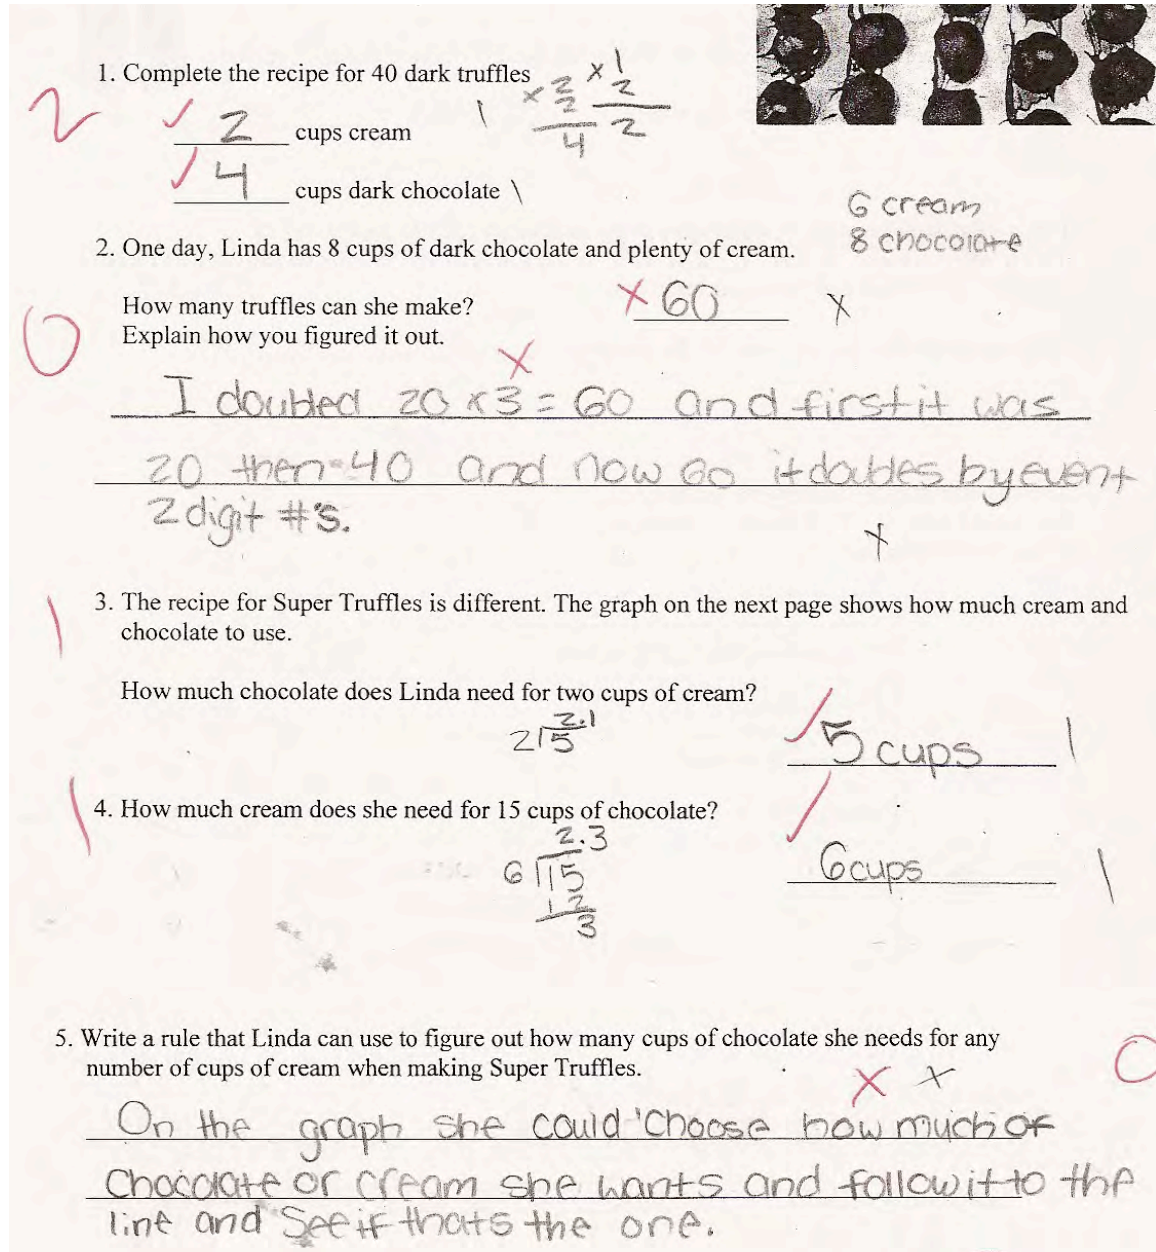 1. Complete the recipe for 40 dark truffles
× 2/2 × 1/2
4 2
2
✓ 2 cups cream \
✓ 4 cups dark chocolate \
6 cream
8 chocolate
2. One day, Linda has 8 cups of dark chocolate and plenty of cream.
0
How many truffles can she make? × 60 ×
Explain how you figured it out.
×
I doubled 20 × 3 = 60 and first it was
20 then 40 and now 60 it doubles by event
2 digit #'s.
×
1
3. The recipe for Super Truffles is different. The graph on the next page shows how much cream and
chocolate to use.
How much chocolate does Linda need for two cups of cream?
2.1
2 5
✓ 5 cups 1
1
4. How much cream does she need for 15 cups of chocolate?
2.3
6 15
12
3
✓ 6 cups 1
5. Write a rule that Linda can use to figure out how many cups of chocolate she needs for any
number of cups of cream when making Super Truffles.
0
× ×
On the graph she could choose how much of
Chocolate or cream she wants and follow it to the
line and See if thats the one.